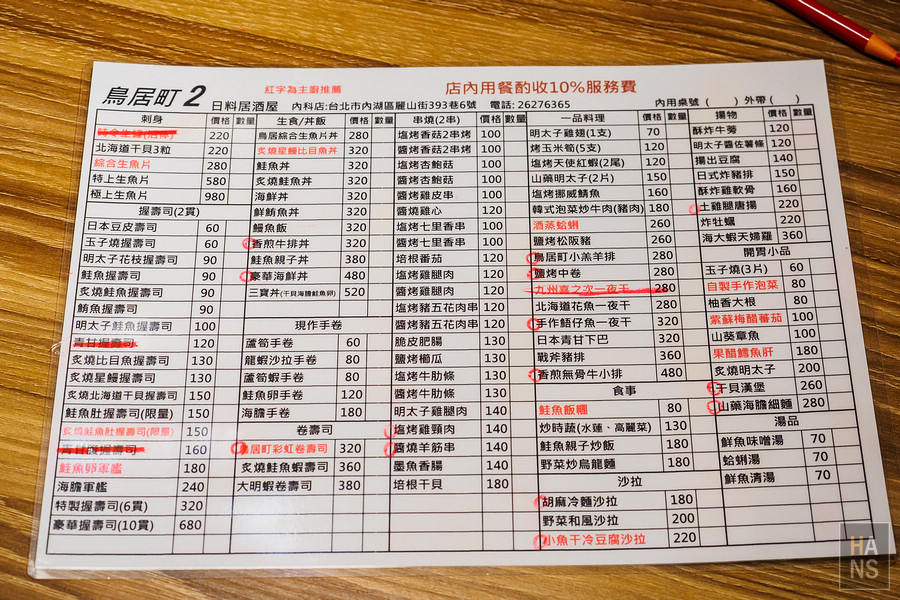 鳥居町 2 日料居酒屋
紅字為主廚推薦
店內用餐酌收10%服務費
內科店:台北市內湖區麗山街393巷6號 電話: 26276365
內用桌號 ( ) 外帶 ( )
刺身 價格 數量
220
北海道干貝3粒 220
綜合生魚片 280
特上生魚片 580
極上生魚片 980
握壽司(2貫)
日本豆皮壽司 60
玉子燒握壽司 60
明太子花枝握壽司 90
鮭魚握壽司 90
炙燒鮭魚握壽司 90
鮪魚握壽司 90
明太子鮭魚握壽司 100
青甘握壽司 120
炙燒比目魚握壽司 130
炙燒星鰻握壽司 130
炙燒北海道干貝握壽司 150
鮭魚肚握壽司(限量) 150
炙燒鮭魚肚握壽司(限量) 150
青甘腹握壽司 160
鮭魚卵軍艦 180
海膽軍艦 240
特製握壽司(6貫) 320
豪華握壽司(10貫) 680
生食/丼飯 價格 數量
鳥居綜合生魚片丼 280
炙燒星鰻比目魚丼 320
鮭魚丼 320
炙燒鮭魚丼 320
海鮮丼 320
鮮鮪魚丼 320
鰻魚飯 320
香煎牛排丼 320
鮭魚親子丼 380
豪華海鮮丼 480
三寶丼(干貝海膽鮭魚卵) 520
現作手卷
蘆筍手卷 60
龍蝦沙拉手卷 80
蘆筍蝦手卷 80
鮭魚卵手卷 120
海膽手卷 180
卷壽司
鳥居町彩虹卷壽司 320
炙燒鮭魚蝦壽司 360
大明蝦卷壽司 380
串燒(2串) 價格 數量
塩烤香菇2串烤 100
醬烤香菇2串烤 100
塩烤杏鮑菇 100
醬烤杏鮑菇 100
醬烤雞皮串 100
醬燒雞心 120
塩烤七里香串 100
醬烤七里香串 100
培根番茄 120
塩烤雞腿肉 120
醬烤雞腿肉 120
塩烤豬五花肉串 120
醬烤豬五花肉串 120
脆皮肥腸 130
鹽烤櫛瓜 130
塩烤牛肋條 130
醬烤牛肋條 130
明太子雞腿肉 140
塩烤雞頸肉 140
醬燒羊筋串 140
墨魚香腸 140
培根干貝 180
一品料理 價格 數量
明太子雞翅(1支) 70
烤玉米筍(5支) 120
塩烤天使紅蝦(2尾) 120
山藥明太子(2片) 150
塩烤挪威鯖魚 160
韓式泡菜炒牛肉(豬肉) 180
酒蒸蛤蜊 260
鹽烤松阪豬 260
鳥居町小羔羊排 280
鹽烤中卷 280
九州嘉之次一夜干 280
北海道花魚一夜干 280
手作舒仔魚一夜干 320
日本青甘下巴 320
戰斧豬排 360
香煎無骨牛小排 480
食事
鮭魚飯糰 80
炒時蔬(水蓮、高麗菜) 130
鮭魚親子炒飯 180
野菜炒烏龍麵 180
沙拉
胡麻冷麵沙拉 180
野菜和風沙拉 200
小魚干冷豆腐沙拉 220
揚物 價格 數量
酥炸牛蒡 120
明太子醬佐薯條 120
揚出豆腐 140
日式炸豬排 150
酥炸雞軟骨 160
土雞腿唐揚 220
炸牡蠣 220
海大蝦天婦羅 360
開胃小品
玉子燒(3片) 60
自製手作泡菜 80
柚香大根 80
紫蘇梅醋蕃茄 100
山葵章魚 100
果醋鱈魚肝 180
炙燒明太子 200
干貝漢堡 260
山藥海膽細麵 280
湯品
鮮魚味噌湯 70
蛤蜊湯 70
鮮魚清湯 70
HANS